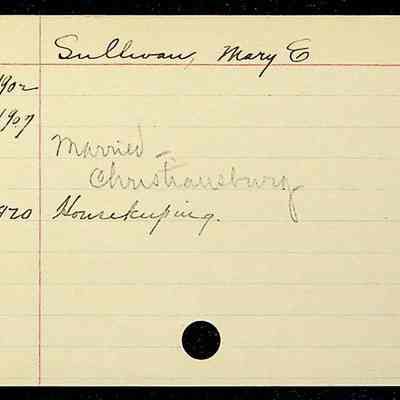 Sullivan, Mary E
1902
1907
Married -
Christiansburg
920 Housekeeping.